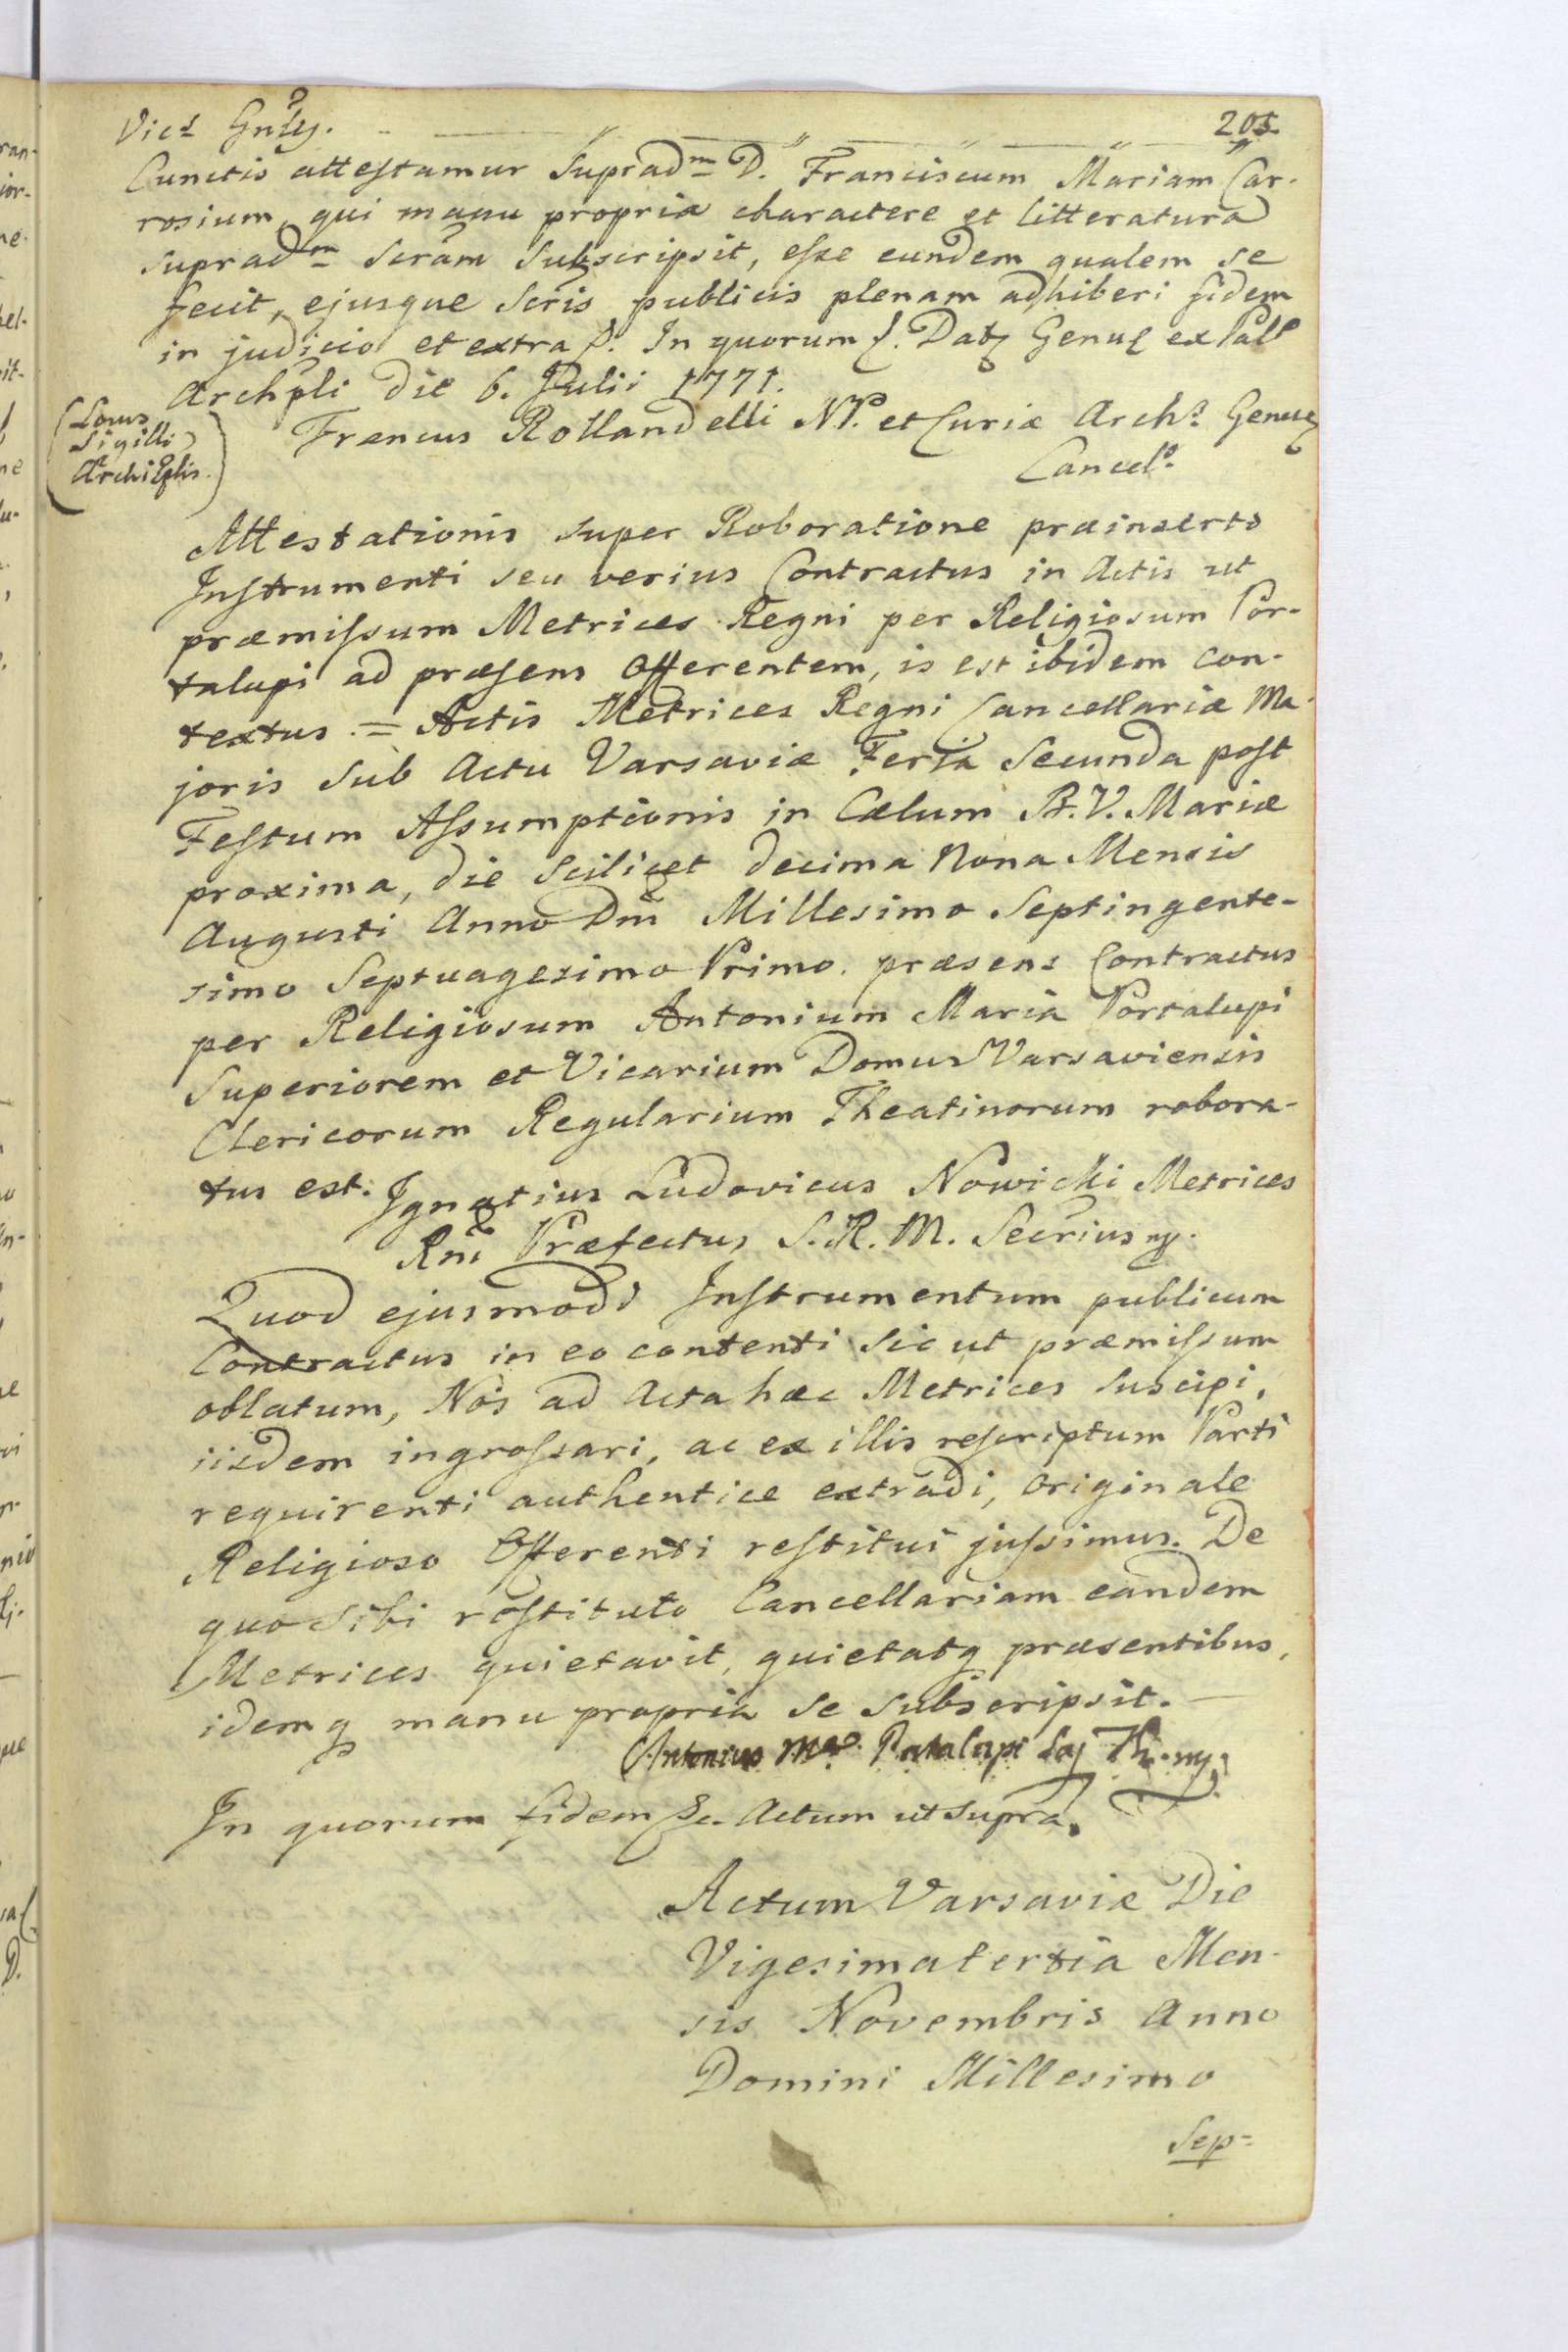 205.
Vics Gnlis.
Cunctis attestamur Supradm D. Franciscum Mariam Car-
rosium, qui manu propria charactere et litteratura
supradm Scrãm Subscripsit, esse eundem qualem se
fecit, ejusque Scris publicis plenam adhiberi fidem
in judicio et extra &. In quorum &. Datq Genuę ex Pal
Archpli die 6. Julii 1771.
(Locus
Sigilli
ArchiEplis.)
Francus Rollandelli NP. et Curiæ Archs. Genuę
Cancels.
Attestationis super Roboratione præinserto
Instrumenti seu verius Contractus in Actis ut
præmissum Metrices Regni per Religiosum Por-
talupi ad præsens Offerentem, is est ibidem con-
textus = Actis Metrices Regni Cancellariæ Ma-
joris Sub Actu Varsaviæ Feria Secunda post
Festum Assumptionis in Cælum B. V. Mariæ
proxima, die Scilicet decima Nona Mensis
Augusti Anno Dnĩ Millesimo Septingente-
simo Septuagesimo Primo. præsens Contractus
per Religiosum Antonium Maria Portalupi
Superiorem et Vicarium Domus Varsaviensis
Clericorum Regularium Theatinorum robora-
tus est. Ignatius Ludovicus Nowicki Metrices
Rnĩ Præfectus, S. R. M. Secrius mp.
Quod ejusmodi Instrumentum publicum
Contractus in eo contenti sic ut præmissum
oblatum, Nos ad Acta hæc Metrices Suscipi,
iisdem ingrossari, ac ex illis rescriptum Parti
requirenti authentice extradi, originale
Religioso Offerenti restitui jussimus. De
quo Sibi restituto Cancellariam eandem
Metrices quietavit, quietatq præsentibus,
idemq manu propria se subscripsit.
Antonius Ma. Portalupi Th. mp.
In quorum fidem &c. Actum ut supra.
Actum Varsaviæ Die
Vigesima tertia Men-
sis Novembris Anno
Domini Millesimo
Sep=